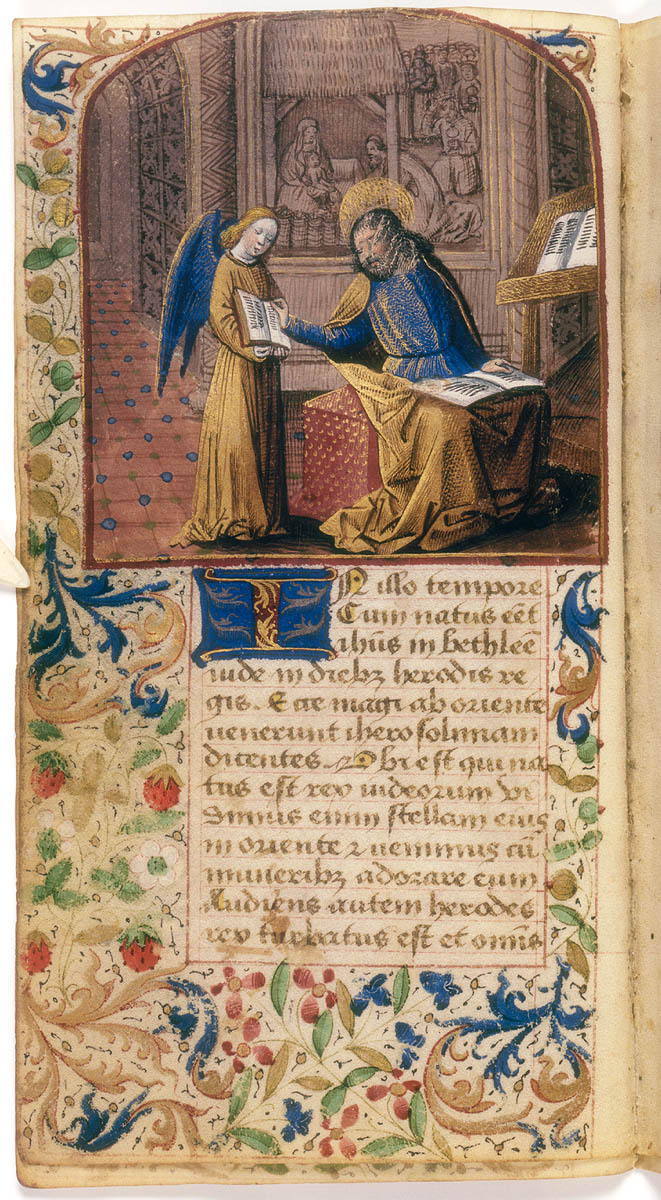 IN illo tempore
Cum natus eēt
ihūs in bethleē
iude in diebꝫ herodis re
gis. Ecce magi ab oriente
uenerunt iherosolimam
dicentes. Vbi est qui na
tus est rex iudeorum Vi
dimus enim stellam eius
in oriente ⁊ uenimus cū
muneribꝫ adorare eum
Audiens autem herodes
rex turbatus est et omīs